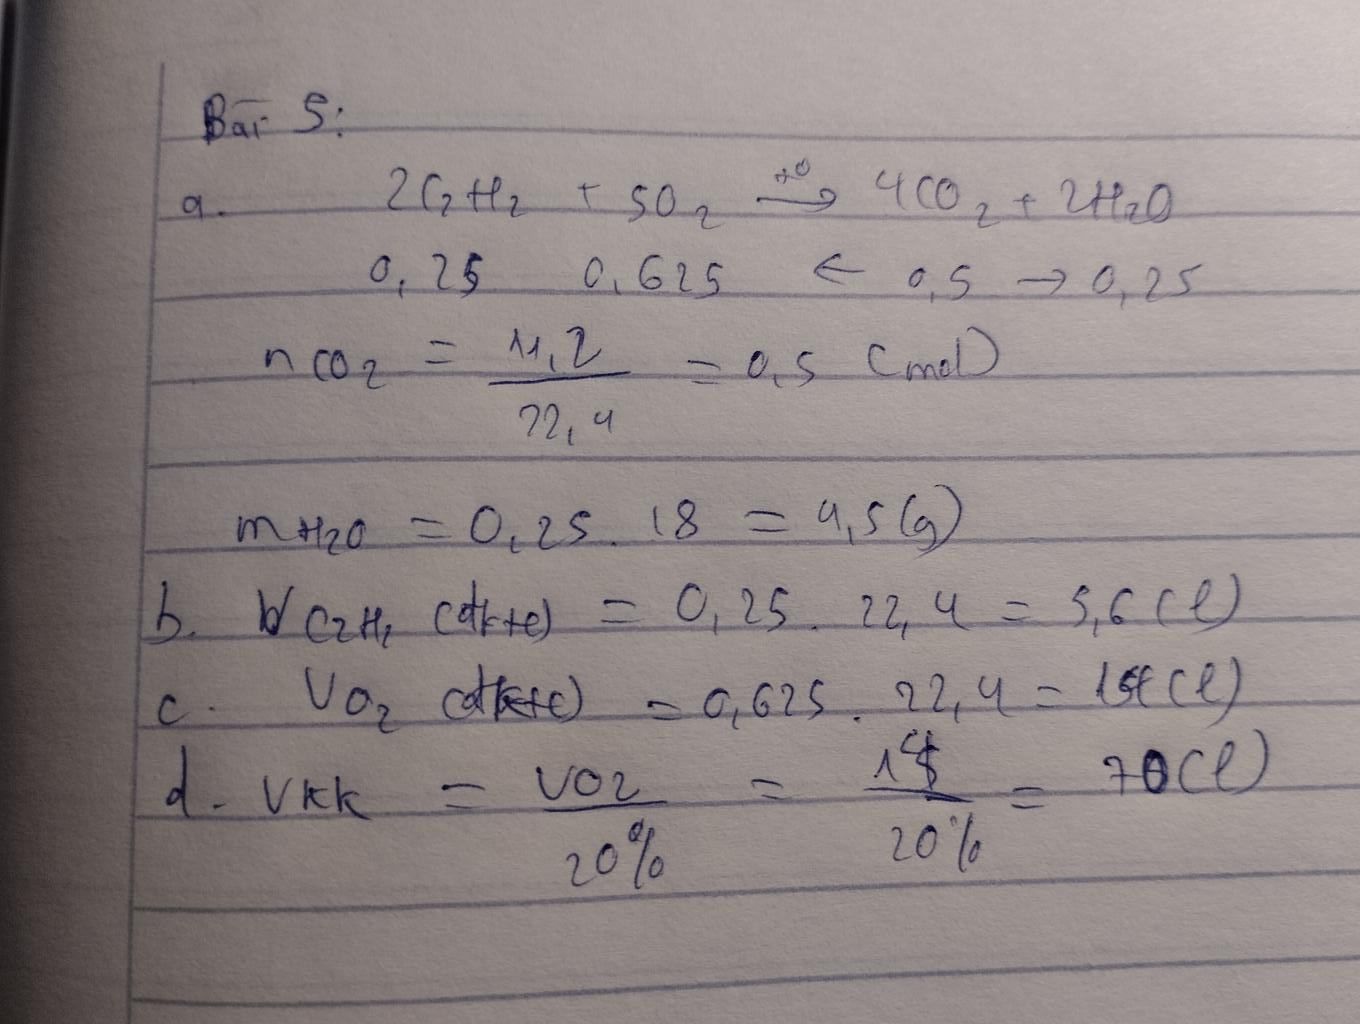 Bài 5:
a. 2C2H2 + 5O2 t°→ 4CO2 + 2H2O
0,25 0,625 ← 0,5 → 0,25
nCO2 = 11,2 / 22,4 = 0,5 (mol)
mH2O = 0,25. 18 = 4,5 (g)
b. VC2H2 (đktc) = 0,25. 22,4 = 5,6 (l)
c. VO2 (đktc) = 0,625. 22,4 = 14 (l)
d. Vkk = VO2 / 20% = 14 / 20% = 70 (l)